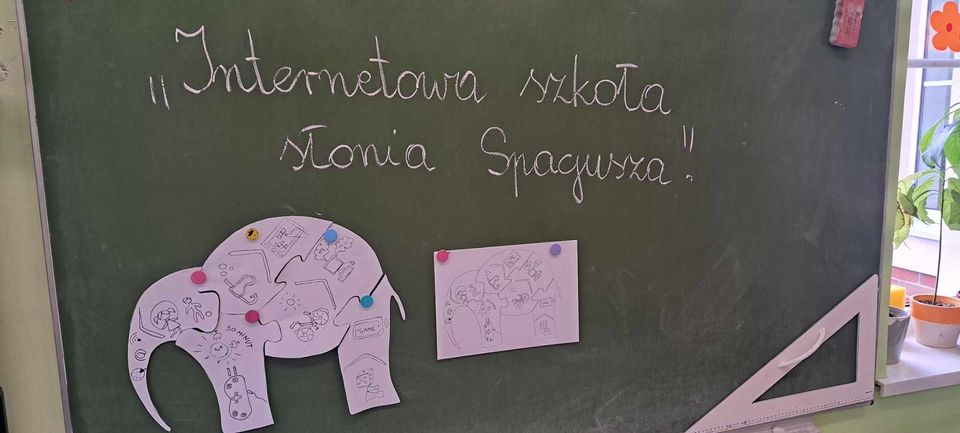 „Internetowa szkoła
słonia Spagusza".
30 MINUT
"GAME"